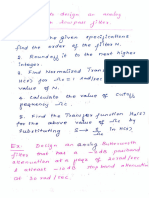 to design an analog
filter
the given specifications
find the order of the filter N.
2. Round off it to the next higher
integer.
3. Find Normalized Trans
H(s) for Ωc = 1 rad/sec
value of N.
4. Calculate the value of cutoff
frequency Ωc.
5. Find the Transfer function Ha(s)
for the above value of Ωc by
Substituting S → in H(s)
Ex: Design an analog Butterworth
filter has a
attenuation at a of 20 rad/sec
& atleast -10dB stop band attenuation
at 30 rad/sec.